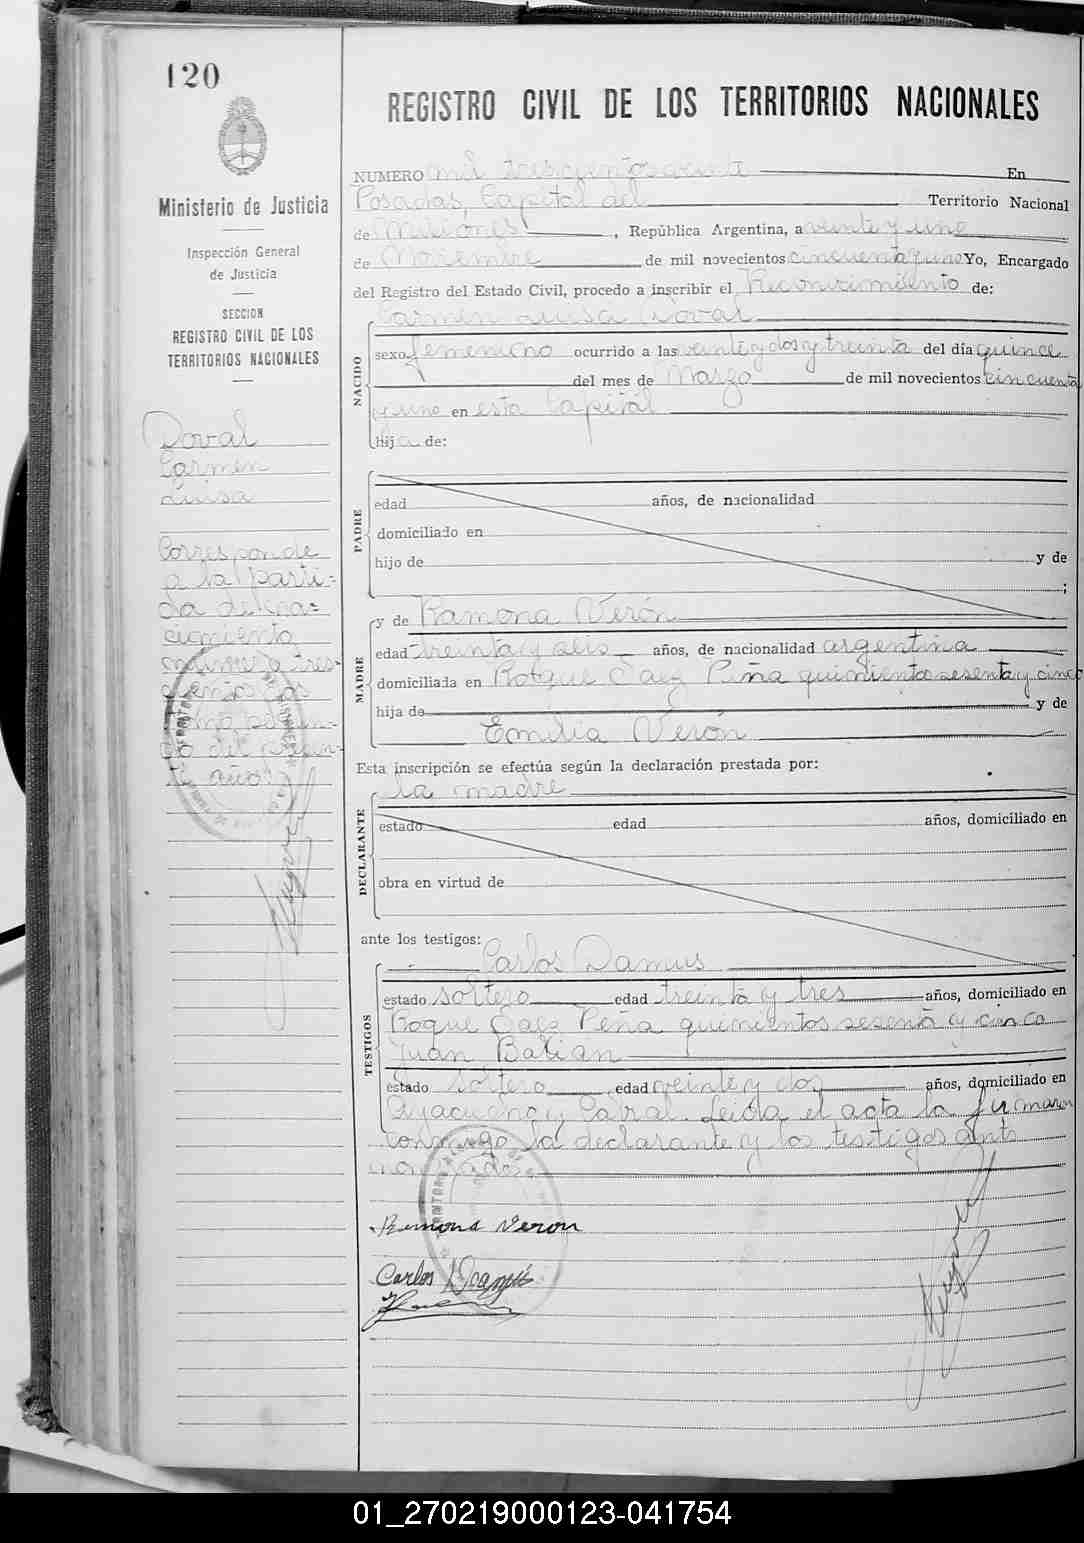 120
REGISTRO CIVIL DE LOS TERRITORIOS NACIONALES
Ministerio de Justicia
Inspección General
de Justicia
SECCION
REGISTRO CIVIL DE LOS
TERRITORIOS NACIONALES
Doval
Carmen
Luisa
Corresponde
a la parti-
da de na-
cimiento
numero tres-
cientos
del
te año
NUMERO mil trescientos veinte En
Posadas, Capital del Territorio Nacional
de Misiones, República Argentina, a veinte y uno
de Noviembre de mil novecientos cincuenta y uno Yo, Encargado
del Registro del Estado Civil, procedo a inscribir el Reconocimiento de:
NACIDO
Carmen Luisa Doval
sexo femenino ocurrido a las veinte y dos y treinta del día quince
del mes de Marzo de mil novecientos cincuenta
y uno en esta Capital
Hija de:
PADRE
edad años, de nacionalidad
domiciliado en
hijo de y de
;
MADRE
y de Ramona Verón
edad treinta y seis años, de nacionalidad argentina
domiciliada en Roque Saez Peña quinientos sesenta y cinco
hija de y de
Emilia Verón
Esta inscripción se efectúa según la declaración prestada por:
DECLARANTE
la madre
estado edad años, domiciliado en
obra en virtud de
ante los testigos:
TESTIGOS
Carlos Damus
estado soltero edad treinta y tres años, domiciliado en
Roque Saez Peña quinientos sesenta y cinco
Juan Balián
estado soltero edad veinte y dos años, domiciliado en
Ayacucho y Cabral. Leida el acta la firmaron
conmigo la declarante y los testigos ante
nombrados
Ramona Veron
Carlos Damús
01_270219000123-041754